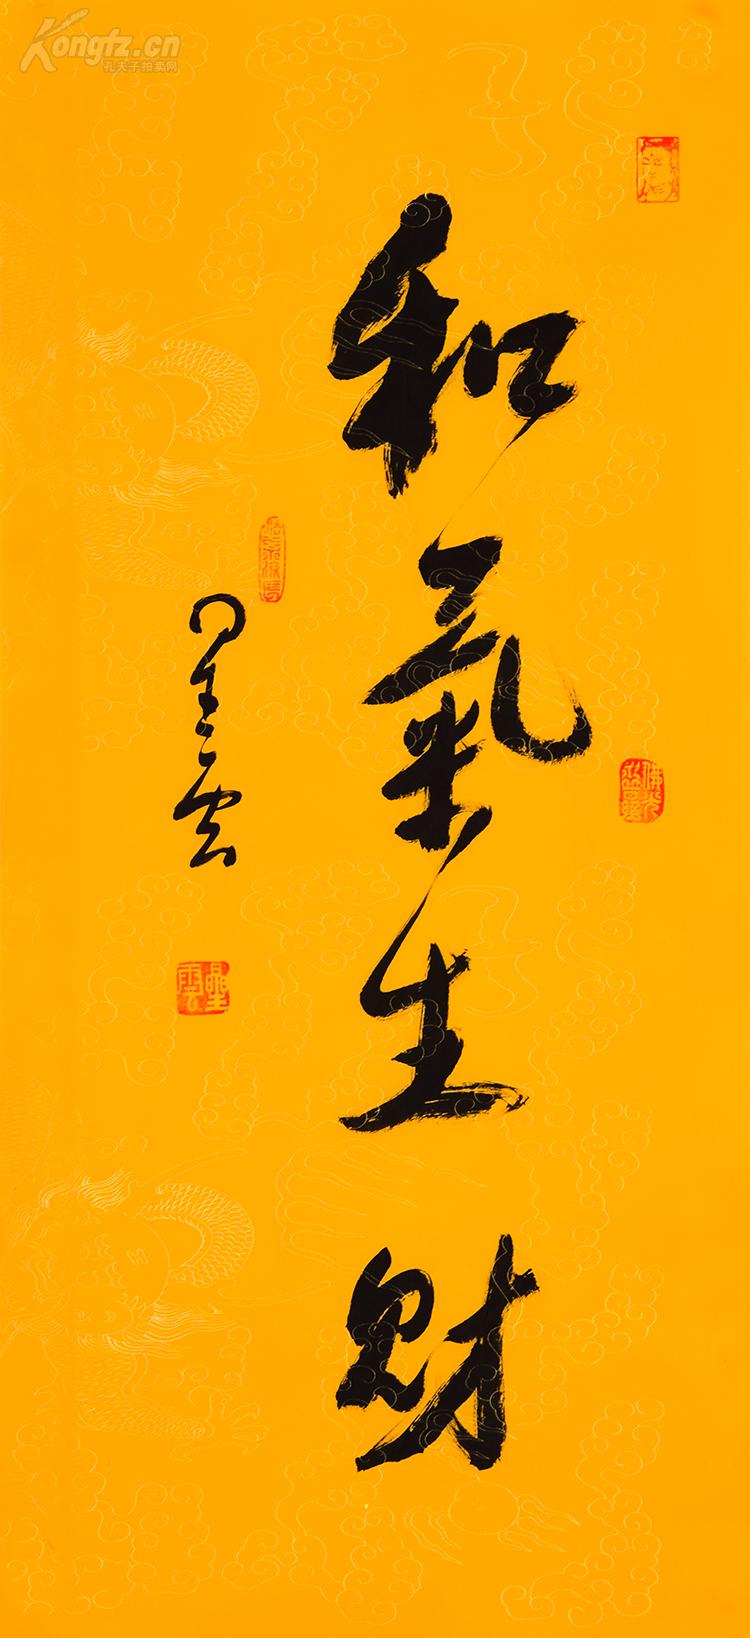 Kongfz.cn
孔夫子拍卖网
和氣生財
星雲
佛光
普照
星雲